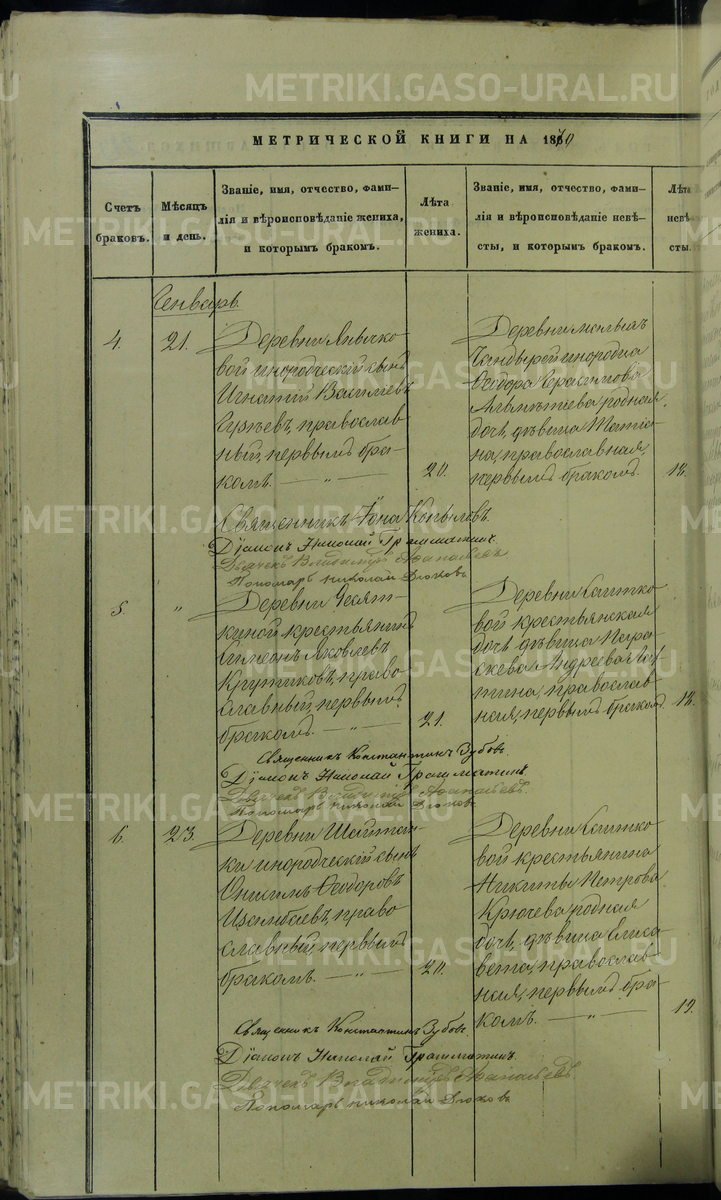 МЕТРИЧЕСКОЙ КНИГИ НА 1870
Счетъ браковъ.
Мѣсяцъ и день.
Званіе, имя, отчество, фами-
лія и вѣроисповѣданіе жениха,
и которымъ бракомъ.
Лѣта жениха.
Званіе, имя, отчество, фами-
лія и вѣроисповѣданіе невѣ-
сты, и которымъ бракомъ.
Лѣта
невѣ-
сты.
Генварь.
4.
21.
Деревни
вой инородческій сынъ
Игнатій Васильевъ
православ-
ный, первымъ бра-
комъ. — „ —
20.
Деревни
инородца
Ѳеодора Герасимова
родная
дочь, дѣвица Татіа-
на, православная,
первымъ бракомъ.
18.
Священникъ Іона Копыловъ.
Діаконъ Николай Грамматинъ.
Дьячекъ Владиміръ Аѳанасьевъ
Пономарь Николай Дюковъ
5.
„
Деревни Чесят-
киной крестьянинъ
Симеонъ Яковлевъ
Крутиковъ, право-
славный, первымъ
бракомъ. — „ —
21.
Деревни Саитко-
вой крестьянская
дочь, дѣвица Пара-
скева Андреева
православ-
ная, первымъ бракомъ.
18.
Священникъ Константинъ Зубовъ
Діаконъ Николай Грамматинъ.
Дьячекъ Владиміръ Аѳанасьевъ.
Пономарь Николай Дюковъ
6.
23.
Деревни Шайтан-
ки инородческій сынъ
Онисимъ Ѳеодоровъ
Изанбаевъ, право-
славный, первымъ
бракомъ. — „ —
20.
Деревни Саитко-
вой крестьянина
Никиты Петрова
Крючева родная
дочь, дѣвица Елиса-
вета, православ-
ная, первымъ бра-
комъ. — „ —
19.
Священникъ Константинъ Зубовъ
Діаконъ Николай Грамматинъ.
Дьячекъ Владиміръ Аѳанасьевъ
Пономарь Николай Дюковъ
METRIKI.GASO-URAL.RU